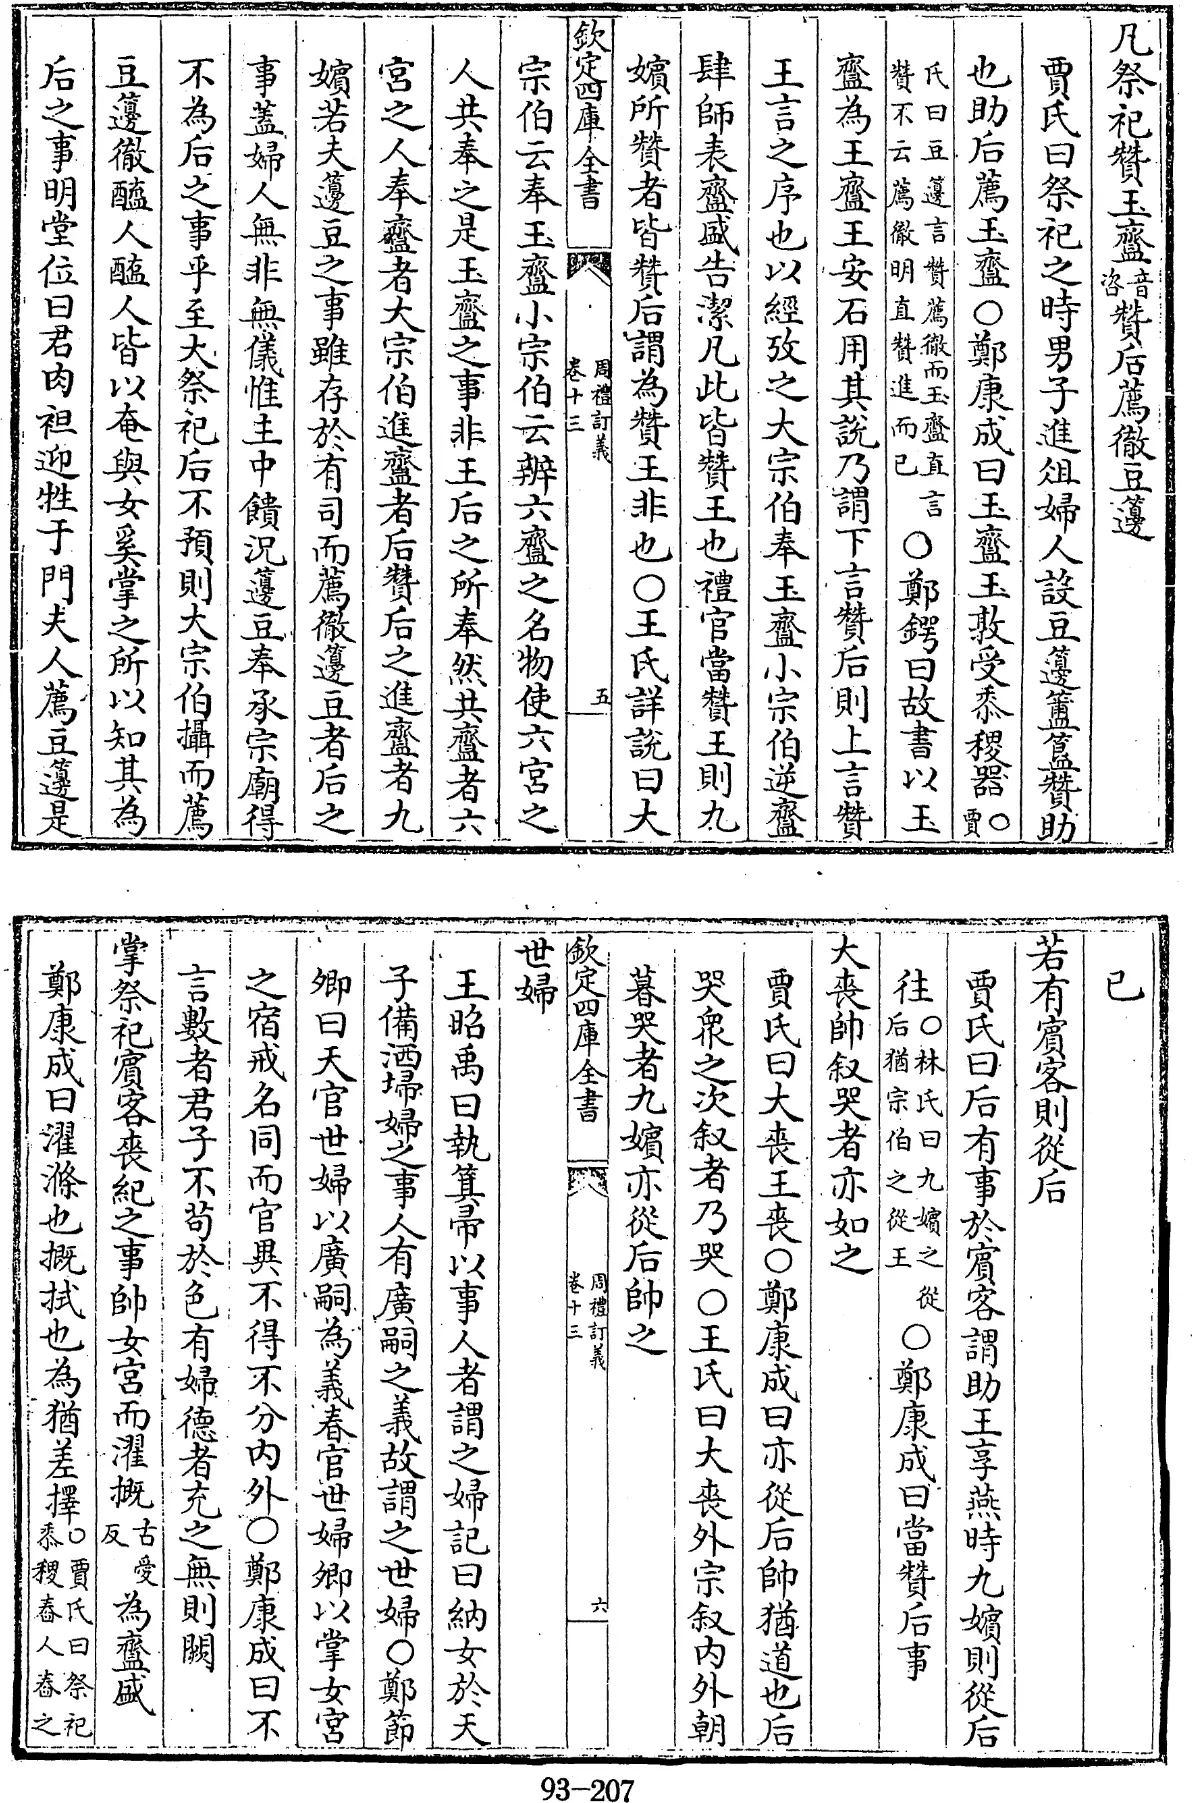 凡祭祀贊玉齍音咨贊后薦徹豆籩
賈氏曰祭祀之時男子進俎婦人設豆籩簠簋贊助
也助后薦玉齍○鄭康成曰玉齍玉敦受黍稷器○賈
氏曰豆籩言贊薦徹而玉齍直言贊不云薦徹明直贊進而已○鄭鍔曰故書以玉
齍為王齍王安石用其說乃謂下言贊后則上言贊
王言之序也以經攷之大宗伯奉玉齍小宗伯逆齍
肆師表齍盛告潔凡此皆贊王也禮官當贊王則九
嬪所贊者皆贊后謂為贊王非也○王氏詳說曰大
欽定四庫全書 周禮訂義卷十三 五
宗伯云奉玉齍小宗伯云辨六齍之名物使六宮之
人共奉之是玉齍之事非王后之所奉然共齍者六
宮之人奉齍者大宗伯進齍者后贊后之進齍者九
嬪若夫籩豆之事雖存於有司而薦徹籩豆者后之
事蓋婦人無非無儀惟主中饋況籩豆奉承宗廟得
不為后之事乎至大祭祀后不預則大宗伯攝而薦
豆籩徹醢人醢人皆以奄與女奚掌之所以知其為
后之事明堂位曰君肉袒迎牲于門夫人薦豆籩是
已
若有賓客則從后
賈氏曰后有事於賓客謂助王享燕時九嬪則從后
往○林氏曰九嬪之從后猶宗伯之從王○鄭康成曰當贊后事
大喪帥叙哭者亦如之
賈氏曰大喪王喪○鄭康成曰亦從后帥猶道也后
哭衆之次叙者乃哭○王氏曰大喪外宗叙内外朝
暮哭者九嬪亦從后帥之
欽定四庫全書 周禮訂義卷十三 六
世婦
王昭禹曰執箕帚以事人者謂之婦記曰納女於天
子備洒埽婦之事人有廣嗣之義故謂之世婦○鄭節
卿曰天官世婦以廣嗣為義春官世婦卿以掌女宮
之宿戒名同而官異不得不分内外○鄭康成曰不
言數者君子不苟於色有婦德者充之無則闕
掌祭祀賓客喪紀之事帥女宮而濯摡古愛反為齍盛
鄭康成曰濯滌也摡拭也為猶差擇○賈氏曰祭祀黍稷舂人舂之